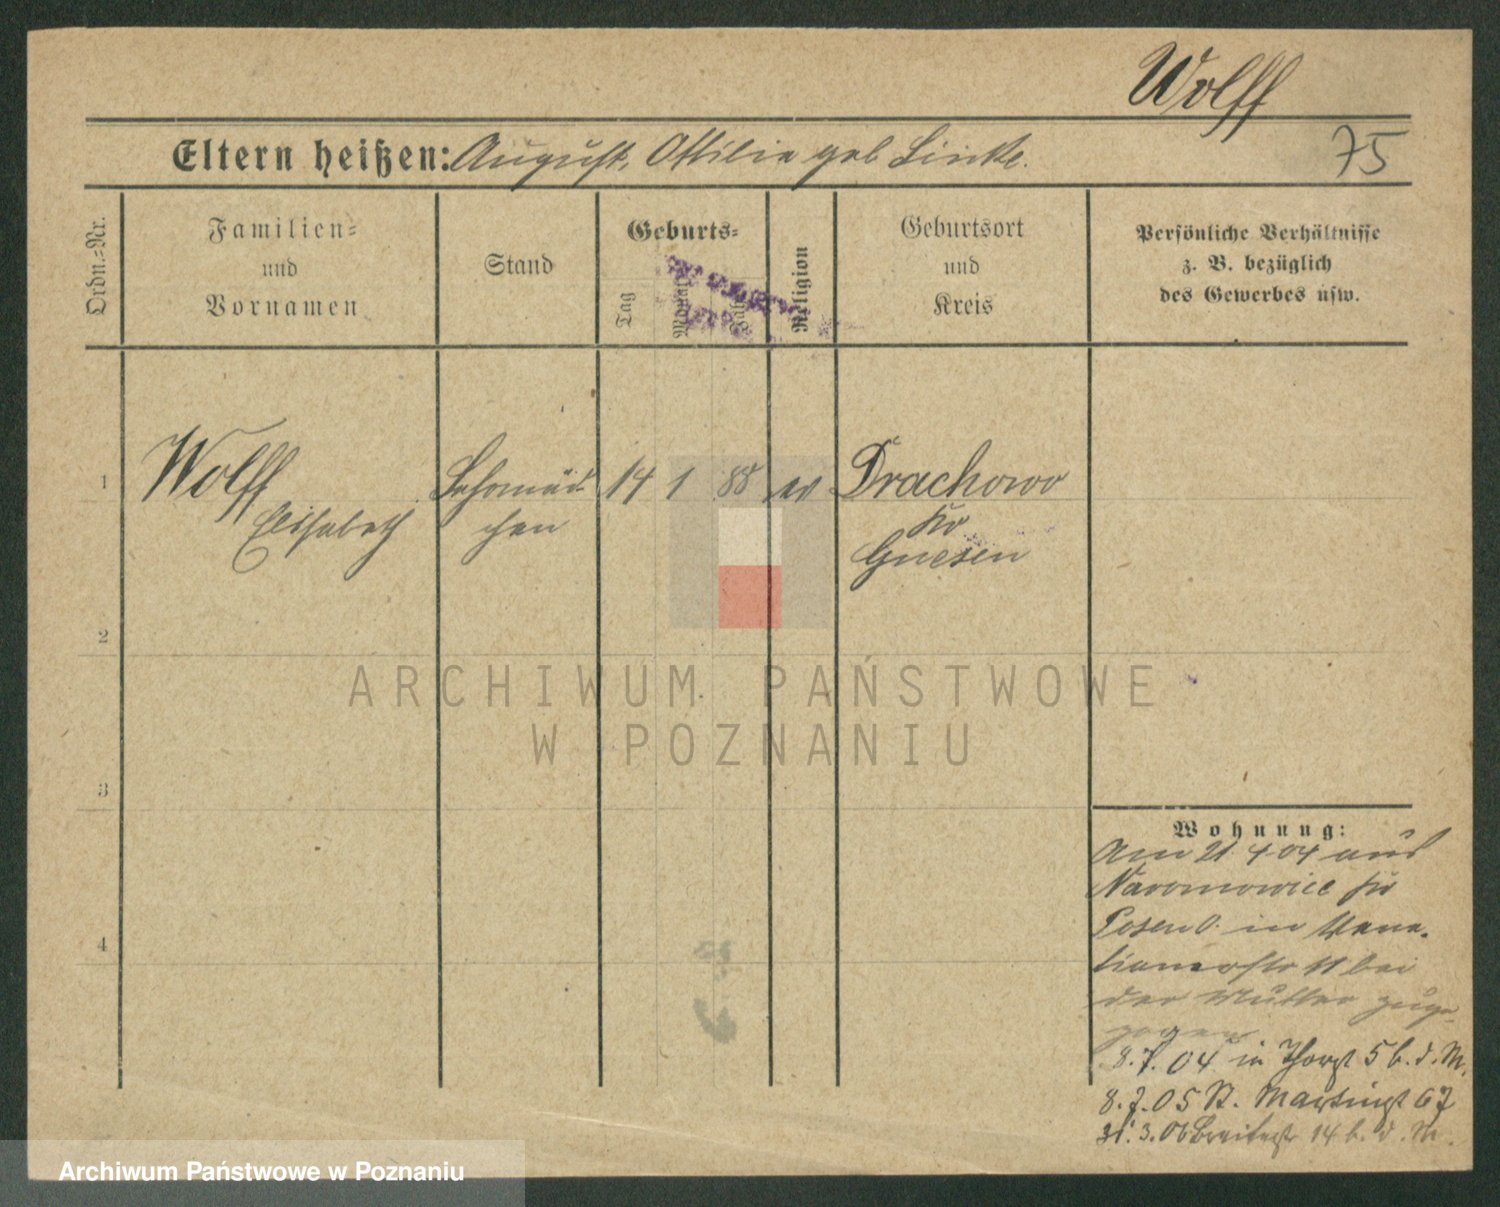 Wolff
75
Eltern heißen: August, Ottilie geb Linke.
Ordn.-Nr.
Familien-
und
Vornamen
Stand
Geburts-
Tag
Monat
Jahr
Religion
Geburtsort
und
Kreis
Persönliche Verhältnisse
z. B. bezüglich
des Gewerbes usw.
1 Wolff 14 1 88 ev Drachowo
Elisabeth chen Kr
Gnesen
2
3
4
Wohnung:
Am 21 4 04 aus
Naromowice Kr
Posen O. in Vene-
tianerstr 11 bei
der Mutter zuge-
zogen
8.7.04 in 5 b. d. M.
8.7.05 St. Martinst 67
31.3.06 Breitestr 14 b. d. M.
ARCHIWUM PAŃSTWOWE
W POZNANIU
Archiwum Państwowe w Poznaniu